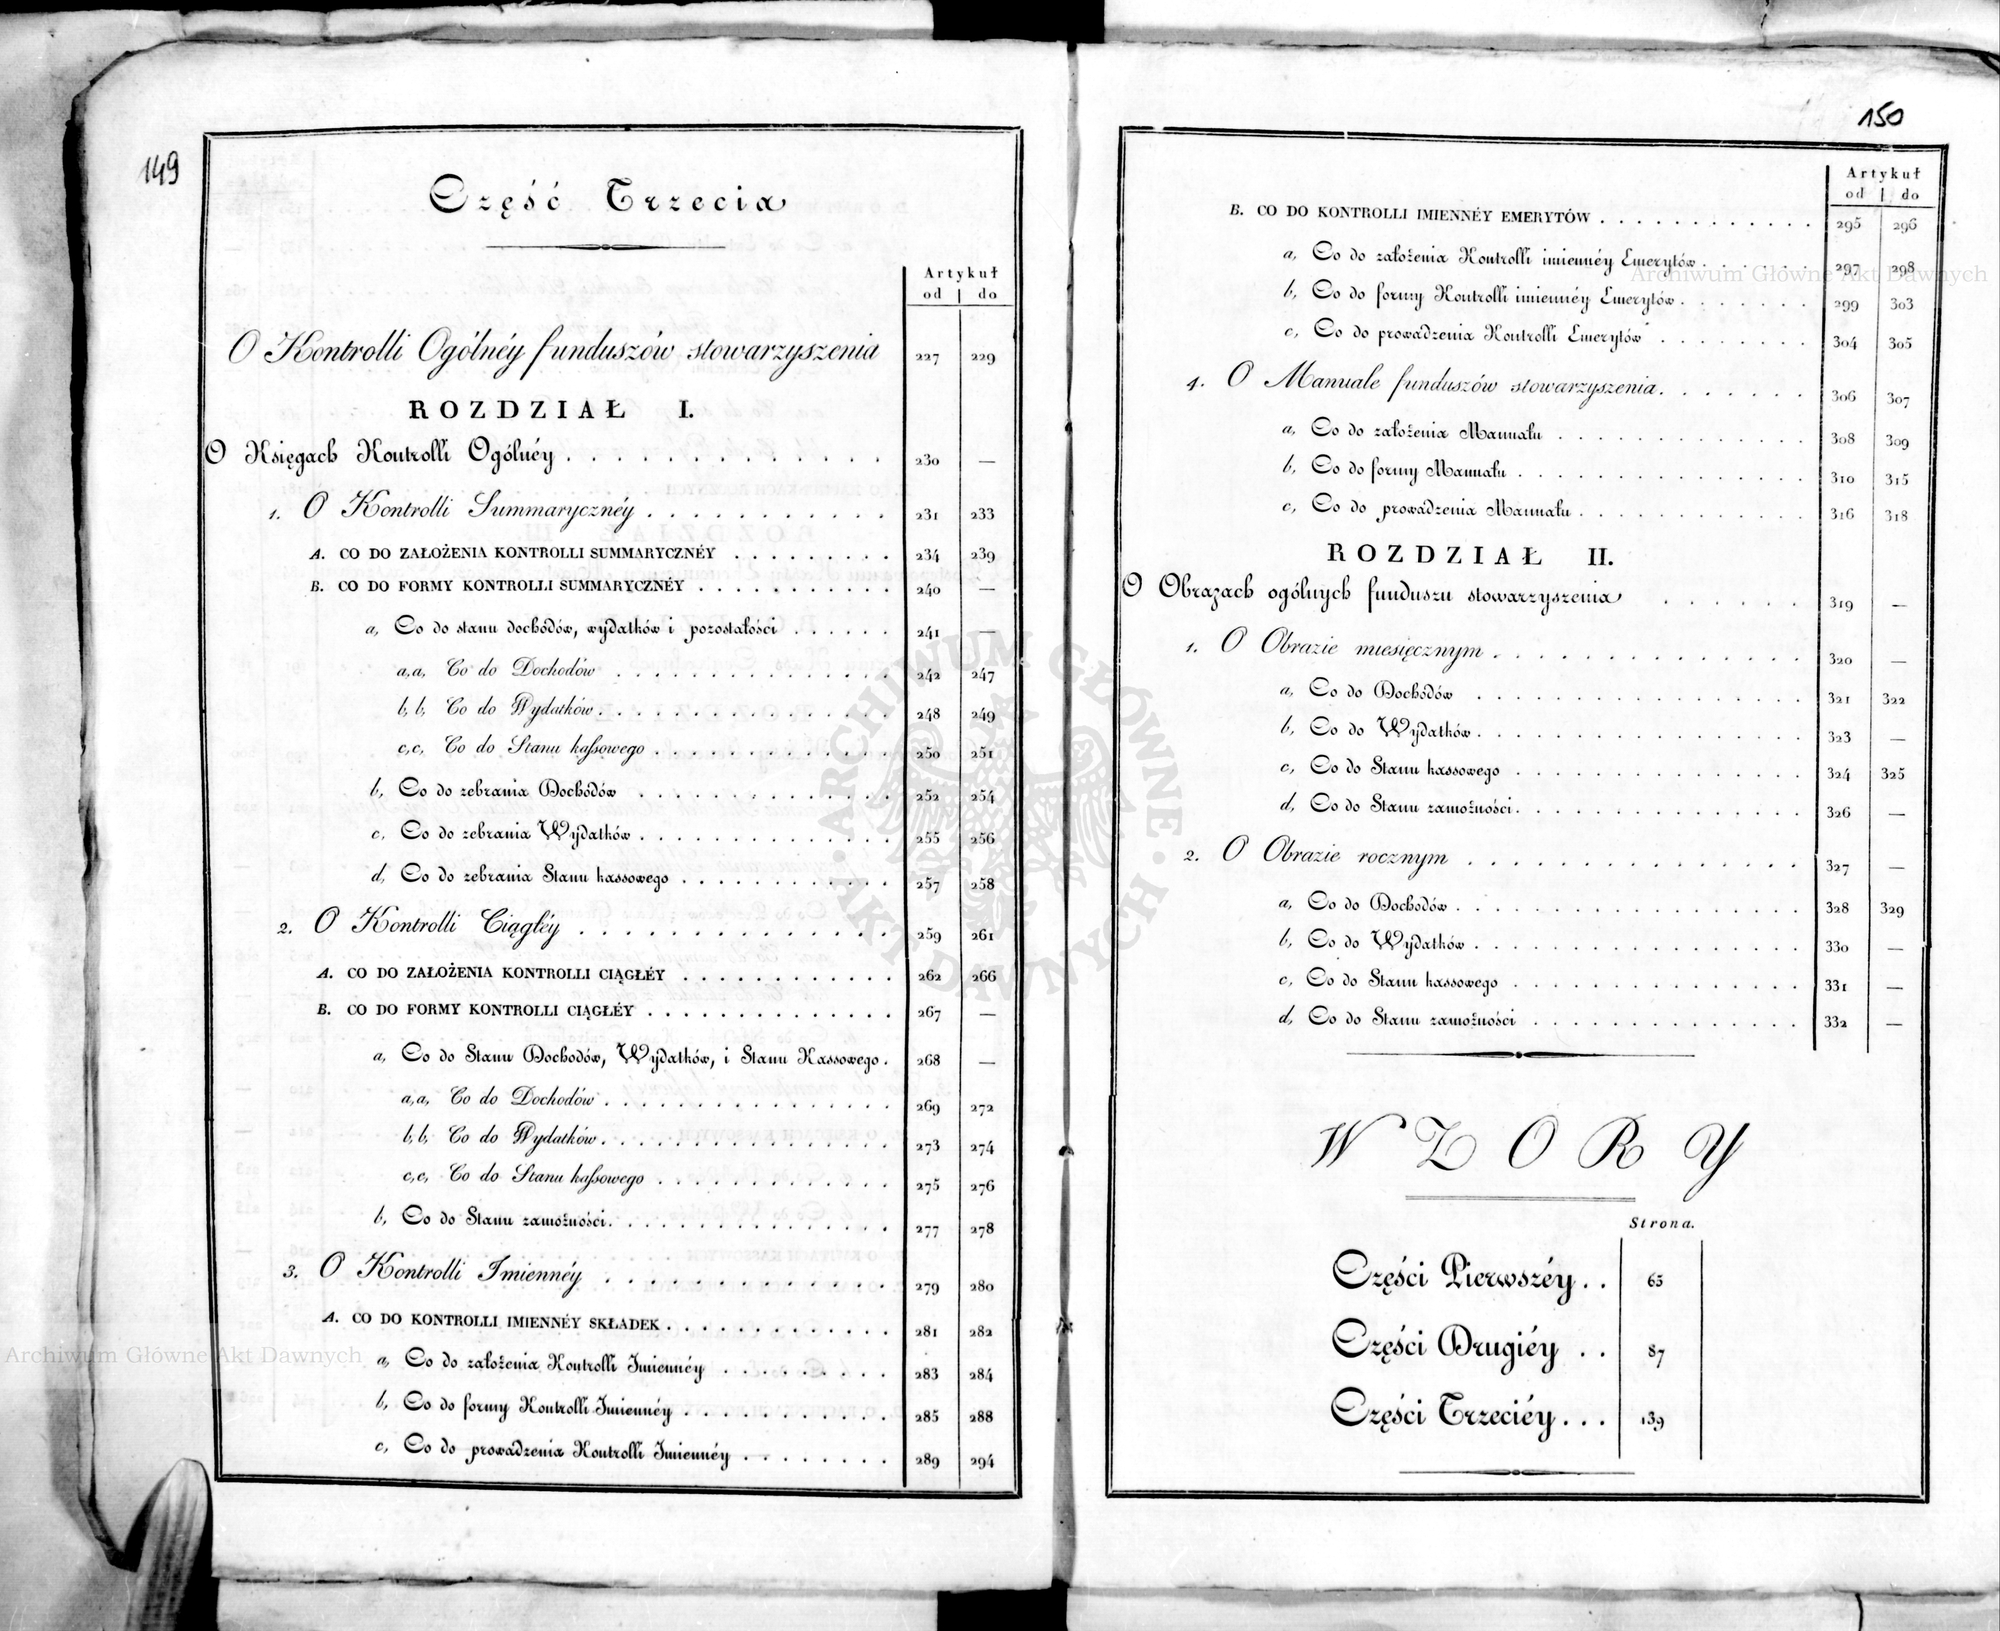 149
Część Trzecia
Artykuł
od | do
O Kontrolli Ogólnéy funduszów stowarzyszenia 227 229
ROZDZIAŁ I.
O Księgach Kontrolli Ogólnéy . . . . . . . . . . . . 230 —
1. O Kontrolli Summarycznéy . . . . . . . . . . . 231 233
A. CO DO ZAŁOŻENIA KONTROLLI SUMMARYCZNÉY . . . . . . . . . 234 239
B. CO DO FORMY KONTROLLI SUMMARYCZNÉY . . . . . . . . . . . 240 —
a, Co do stanu dochodów, wydatków i pozostałości . . . . . . 241 —
a,a, Co do Dochodów . . . . . . . . . . . . . . . 242 247
b,b, Co do Wydatków . . . . . . . . . . . . . . . 248 249
c,c, Co do Stanu kassowego . . . . . . . . . . . . . 250 251
b, Co do zebrania Dochodów . . . . . . . . . . . . . . 252 254
c, Co do zebrania Wydatków . . . . . . . . . . . . . . 255 256
d, Co do zebrania Stanu kassowego . . . . . . . . . . . . 257 258
2. O Kontrolli Ciągłéy . . . . . . . . . . . . . . 259 261
A. CO DO ZAŁOŻENIA KONTROLLI CIĄGŁÉY . . . . . . . . . . . . 262 266
B. CO DO FORMY KONTROLLI CIĄGŁÉY . . . . . . . . . . . . . . 267 —
a, Co do Stanu Dochodów, Wydatków, i Stanu Kassowego . 268 —
a,a, Co do Dochodów . . . . . . . . . . . . . . . . 269 272
b,b, Co do Wydatków . . . . . . . . . . . . . . . . 273 274
c,c, Co do Stanu kassowego . . . . . . . . . . . . . 275 276
b, Co do Stanu zamożności . . . . . . . . . . . . . . . 277 278
3. O Kontrolli Imiennéy . . . . . . . . . . . . . 279 280
A. CO DO KONTROLLI IMIENNÉY SKŁADEK . . . . . . . . . . . . . 281 282
a, Co do założenia Kontrolli Imiennéy . . . . . . . . . 283 284
b, Co do formy Kontrolli Imiennéy . . . . . . . . . . . 285 288
c, Co do prowadzenia Kontrolli Imiennéy . . . . . . . . 289 294
150
Artykuł
od | do
B. CO DO KONTROLLI IMIENNÉY EMERYTÓW . . . . . . . . . . . . 295 296
a, Co do założenia Kontrolli imiennéy Emerytów . . . . . . 297 298
b, Co do formy Kontrolli imiennéy Emerytów . . . . . . . 299 303
c, Co do prowadzenia Kontrolli Emerytów . . . . . . . . 304 305
4. O Manuale funduszów stowarzyszenia . . . . . . . 306 307
a, Co do założenia Manuału . . . . . . . . . . . . . 308 309
b, Co do formy Manuału . . . . . . . . . . . . . . . 310 315
c, Co do prowadzenia Manuału . . . . . . . . . . . . 316 318
ROZDZIAŁ II.
O Obrazach ogólnych funduszu stowarzyszenia . . . . . . 319 —
1. O Obrazie miesięcznym . . . . . . . . . . . . . . 320 —
a, Co do Dochodów . . . . . . . . . . . . . . . . . 321 322
b, Co do Wydatków . . . . . . . . . . . . . . . . . 323 —
c, Co do Stanu kassowego . . . . . . . . . . . . . . . 324 325
d, Co do Stanu zamożności . . . . . . . . . . . . . . . 326 —
2. O Obrazie rocznym . . . . . . . . . . . . . . . 327 —
a, Co do Dochodów . . . . . . . . . . . . . . . . . . 328 329
b, Co do Wydatków . . . . . . . . . . . . . . . . . 330 —
c, Co do Stanu kassowego . . . . . . . . . . . . . . . 331 —
d, Co do Stanu zamożności . . . . . . . . . . . . . . 332 —
WZORY
Strona.
Części Pierwszéy . . 65
Części Drugiéy . . 87
Części Trzeciéy . . . 139
ARCHIWUM GŁÓWNE · AKT DAWNYCH ·
Archiwum Główne Akt Dawnych
Archiwum Główne Akt Dawnych